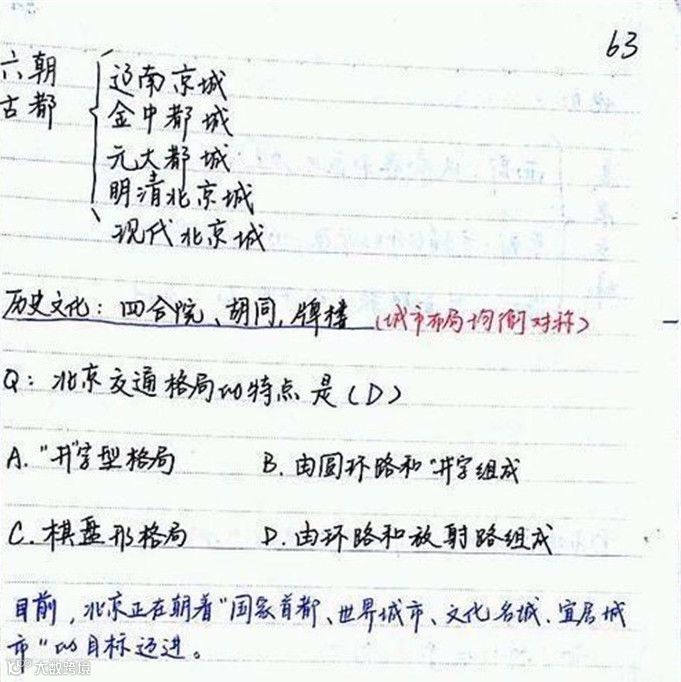 63
六朝古都
辽南京城
金中都城
元大都城
明清北京城
现代北京城
历史文化：四合院、胡同、牌楼（城市布局均衡对称）
Q：北京交通格局的特点是（D）
A."井"字型格局 B.由圆环路和"井"字组成
C.棋盘形格局 D.由环路和放射路组成
目前，北京正在朝着"国家首都、世界城市、文化名城、宜居城
市"的目标迈进。
大数跨境